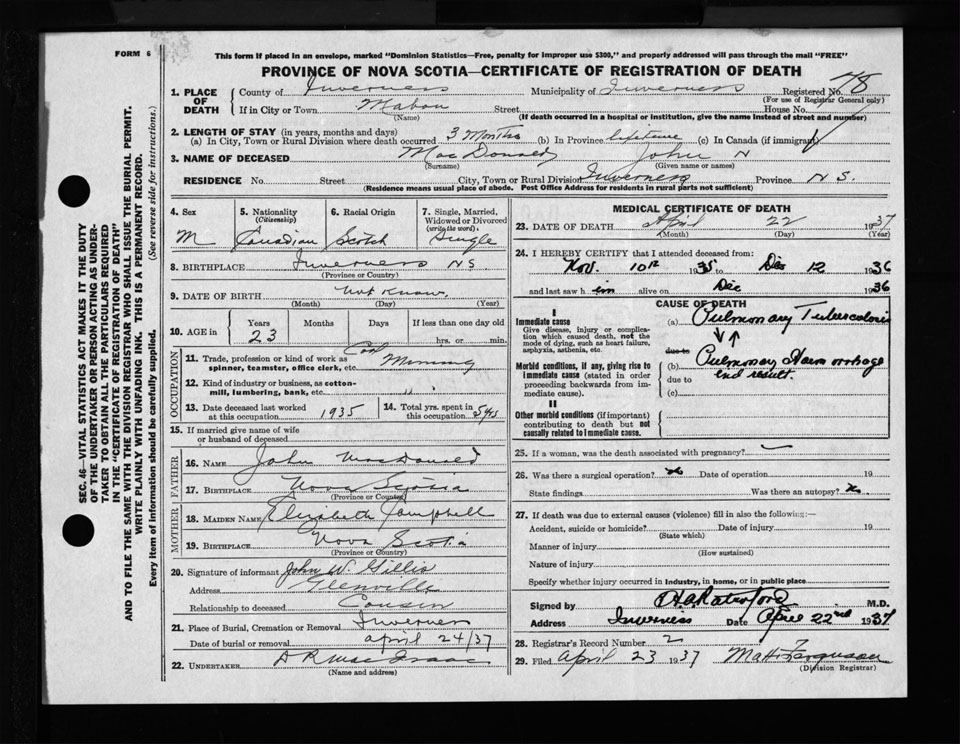 FORM 6
This form if placed in an envelope, marked "Dominion Statistics—Free, penalty for improper use $300," and properly addressed will pass through the mail "FREE"
PROVINCE OF NOVA SCOTIA—CERTIFICATE OF REGISTRATION OF DEATH
SEC. 46—VITAL STATISTICS ACT MAKES IT THE DUTY
OF THE UNDERTAKER OR PERSON ACTING AS UNDER-
TAKER TO OBTAIN ALL THE PARTICULARS REQUIRED
IN THE "CERTIFICATE OF REGISTRATION OF DEATH"
AND TO FILE THE SAME WITH THE DIVISION REGISTRAR WHO SHALL ISSUE THE BURIAL PERMIT.
WRITE PLAINLY WITH UNFADING INK. THIS IS A PERMANENT RECORD.
Every item of information should be carefully supplied. (See reverse side for instructions.)
1. PLACE OF DEATH County of Inverness Municipality of Inverness Registered No. 48
(For use of Registrar General only)
If in City or Town Mabou Street House No.
(Name) (If death occurred in a hospital or institution, give the name instead of street and number)
2. LENGTH OF STAY (in years, months and days)
(a) In City, Town or Rural Division where death occurred 3 Months (b) In Province lifetime (c) In Canada (if immigrant)
3. NAME OF DECEASED MacDonald John N
(Surname) (Given name or names)
RESIDENCE No. Street City, Town or Rural Division Inverness Province N S.
(Residence means usual place of abode. Post Office Address for residents in rural parts not sufficient)
4. Sex M
5. Nationality (Citizenship) Canadian
6. Racial Origin Scotch
7. Single, Married, Widowed or Divorced (write the word) Single
8. BIRTHPLACE Inverness N S.
(Province or Country)
9. DATE OF BIRTH Not Know.
(Month) (Day) (Year)
10. AGE in Years 23 Months Days If less than one day old hrs. or min.
OCCUPATION
11. Trade, profession or kind of work as spinner, teamster, office clerk, etc. Coal Mining
12. Kind of industry or business, as cotton-mill, lumbering, bank, etc. "
13. Date deceased last worked at this occupation 1935
14. Total yrs. spent in this occupation 5 yrs
15. If married give name of wife or husband of deceased
FATHER
16. NAME John MacDonald
17. BIRTHPLACE Nova Scotia
(Province or Country)
MOTHER
18. MAIDEN NAME Elizabeth Campbell
19. BIRTHPLACE Nova Scotia
(Province or Country)
20. Signature of informant John W. Gillis
Address Glenville
Relationship to deceased Cousin
21. Place of Burial, Cremation or Removal Inverness
Date of burial or removal April 24/37
22. UNDERTAKER D R MacIsaac
(Name and address)
MEDICAL CERTIFICATE OF DEATH
23. DATE OF DEATH April 22 1937
(Month) (Day) (Year)
24. I HEREBY CERTIFY that I attended deceased from:
Nov. 10th 1935 to Dec 12 1936
and last saw h im alive on Dec 1936
CAUSE OF DEATH
I
Immediate cause
Give disease, injury or complication which caused death, not the mode of dying, such as heart failure, asphyxia, asthenia, etc.
(a) Pulmonary Tuberculosis
due to
Morbid conditions, if any, giving rise to immediate cause (stated in order proceeding backwards from immediate cause).
(b) Pulmonary Haemorrhage
due to end result.
(c)
II
Other morbid conditions (if important) contributing to death but not causally related to immediate cause.
25. If a woman, was the death associated with pregnancy? —
26. Was there a surgical operation? x Date of operation 19
State findings Was there an autopsy? x.
27. If death was due to external causes (violence) fill in also the following:—
Accident, suicide or homicide? Date of injury 19
(State which)
Manner of injury
(How sustained)
Nature of injury
Specify whether injury occurred in industry, in home, or in public place
Signed by M.D.
Address Inverness Date April 22nd 1937
28. Registrar's Record Number 2
29. Filed April 23 1937 Matt Ferguson
(Division Registrar)